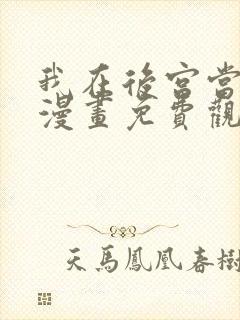 我在後宮當
漫畫免費觀
天馬鳳凰春樹